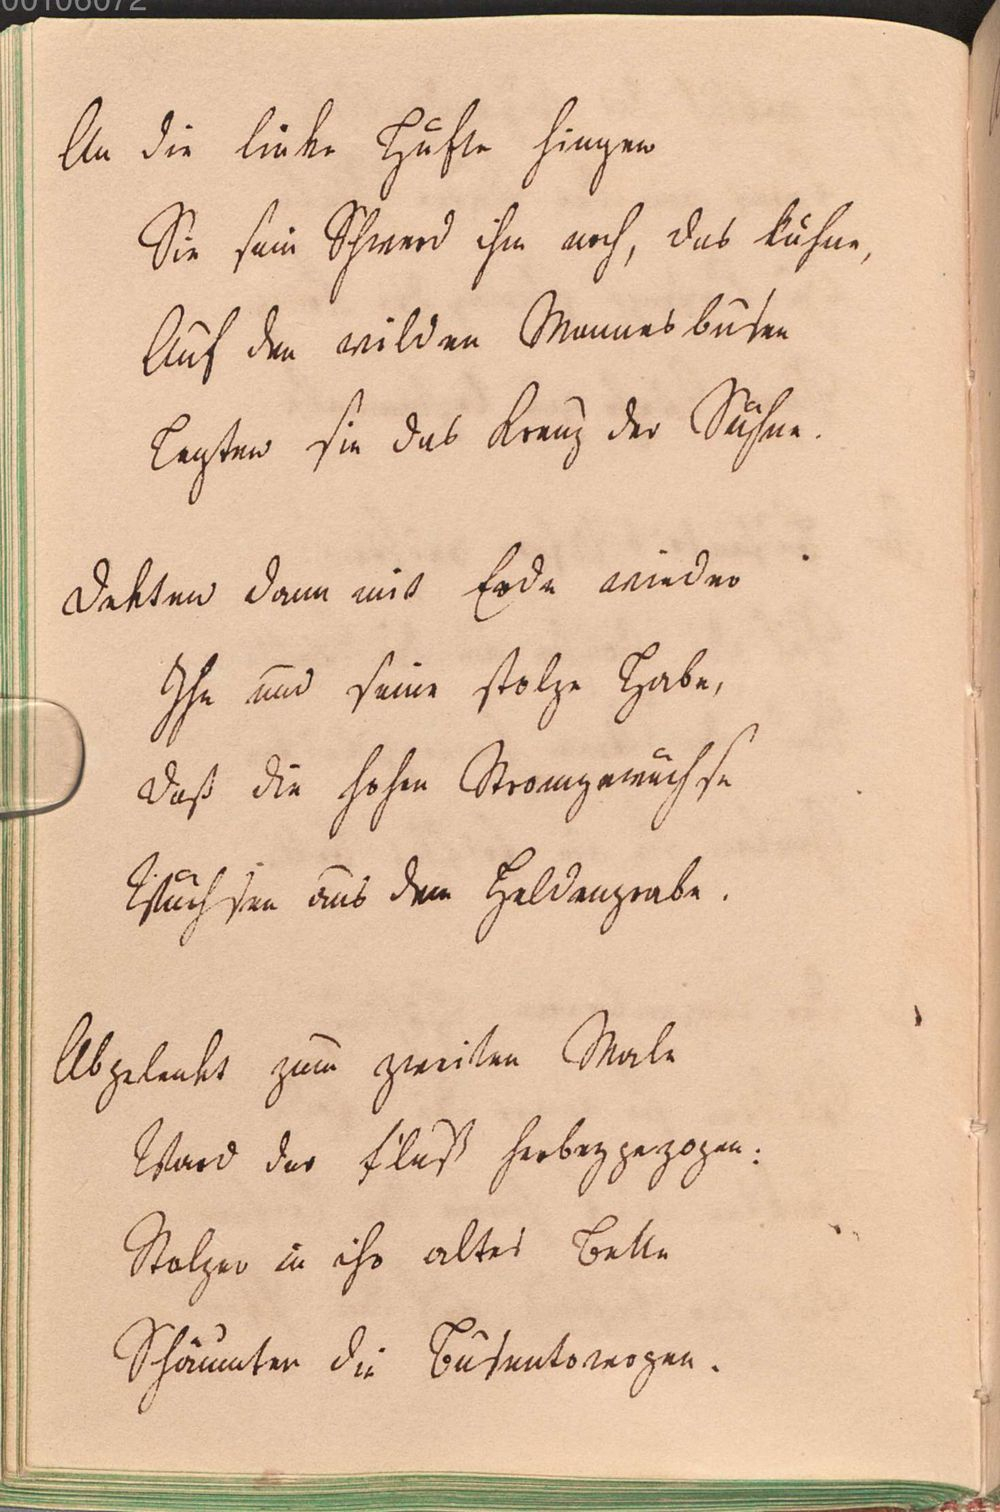 00106072
An die linke Hüfte hingen
Sie sein Schwerd ihm noch, das kühne,
Auf den wilden Mannesbusen
Legten sie das Kreuz der Sühne.
Dekten dann mit Erde wieder
Ihn und seine stolze Habe,
Daß die hohen Stromgewächse
Wüchsen aus dem Heldengrabe.
Abgelenkt zum zweiten Male
Ward der Fluß herbeygezogen:
Stolzer in ihr altes Bette
Schäumten die Busentowogen.